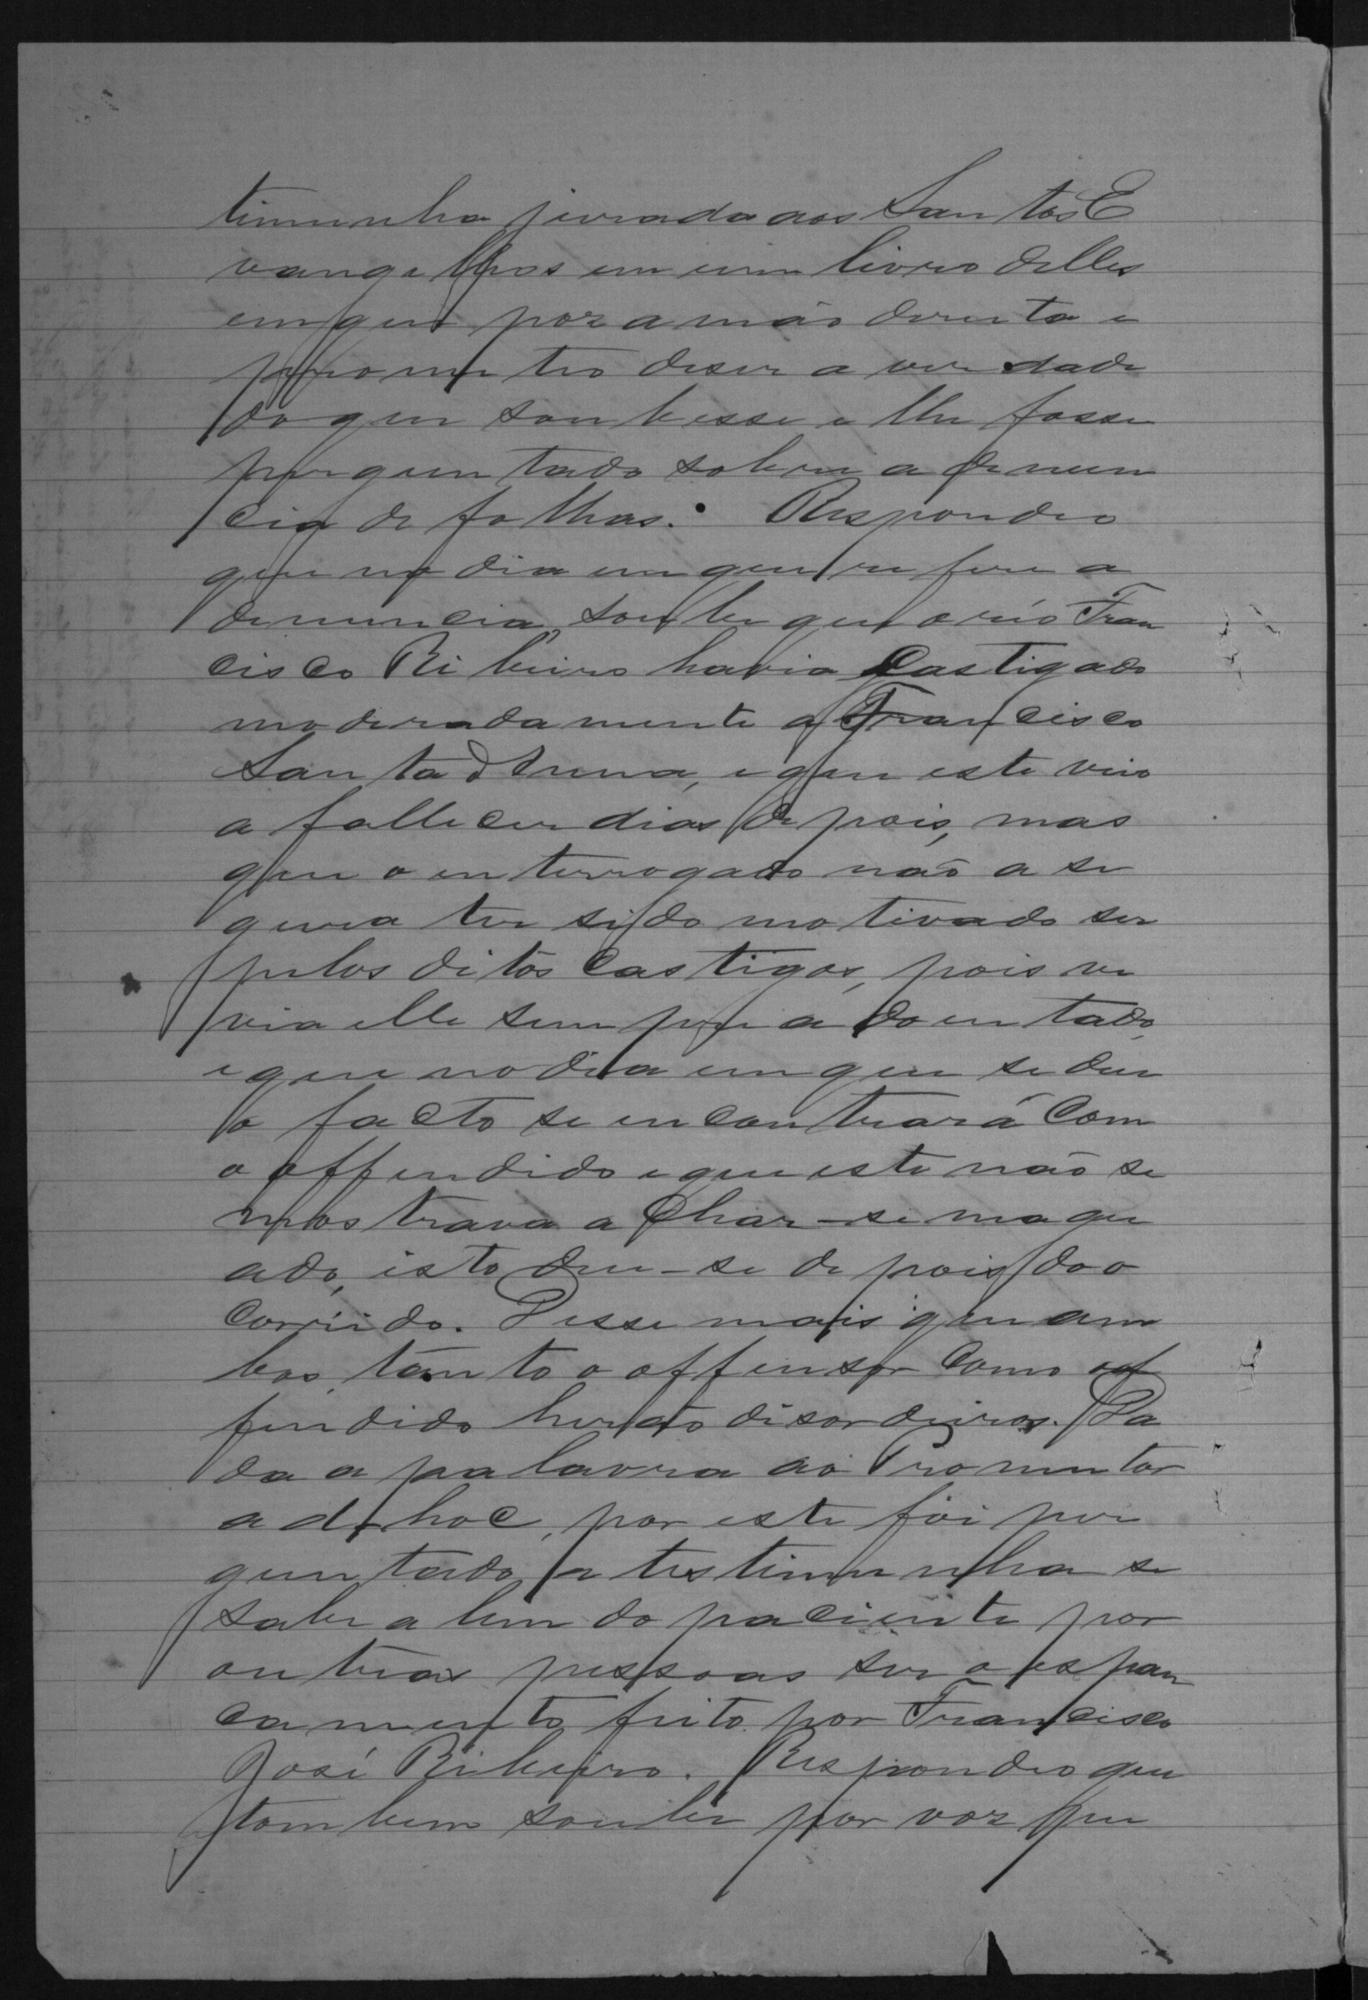 timunha jurada aos Santos E
vangelhos em um livro delles
em que poz a mão direita e
prometteo diser a verdade
do que soubesse e lhe fosse
perguntado sobre a denun
cia de folhas. Respondeo
que no dia em que refere a
denuncia, soube que o réo Fran
cisco Ribeiro havia Castigado
moderadamente a Francisco
Santa e que este veio
a fallecer dias depois, mas
que o enterrogado não a se
gura ter sido motivado ser
pelos ditos Castigos, pois vi
via elle sempre a doentado,
e que no dia em que se deu
o facto se encontrará Com
o offendido e que este não se
mostrava a Char-se magu
ado, isto deu-se depois do o
Corrido. Disse mais que am
bos, tanto o offensor Como of
fendido herão disordeiros. Da
da a palavra ao Promutor
ad-hoc, por este foi per
guntado a testimunha se
sabe alem do paciente por
outras pessoas ser o espan
camento feito por Francisco
José Ribeiro. Respondeo que
tambem soube por voz pu